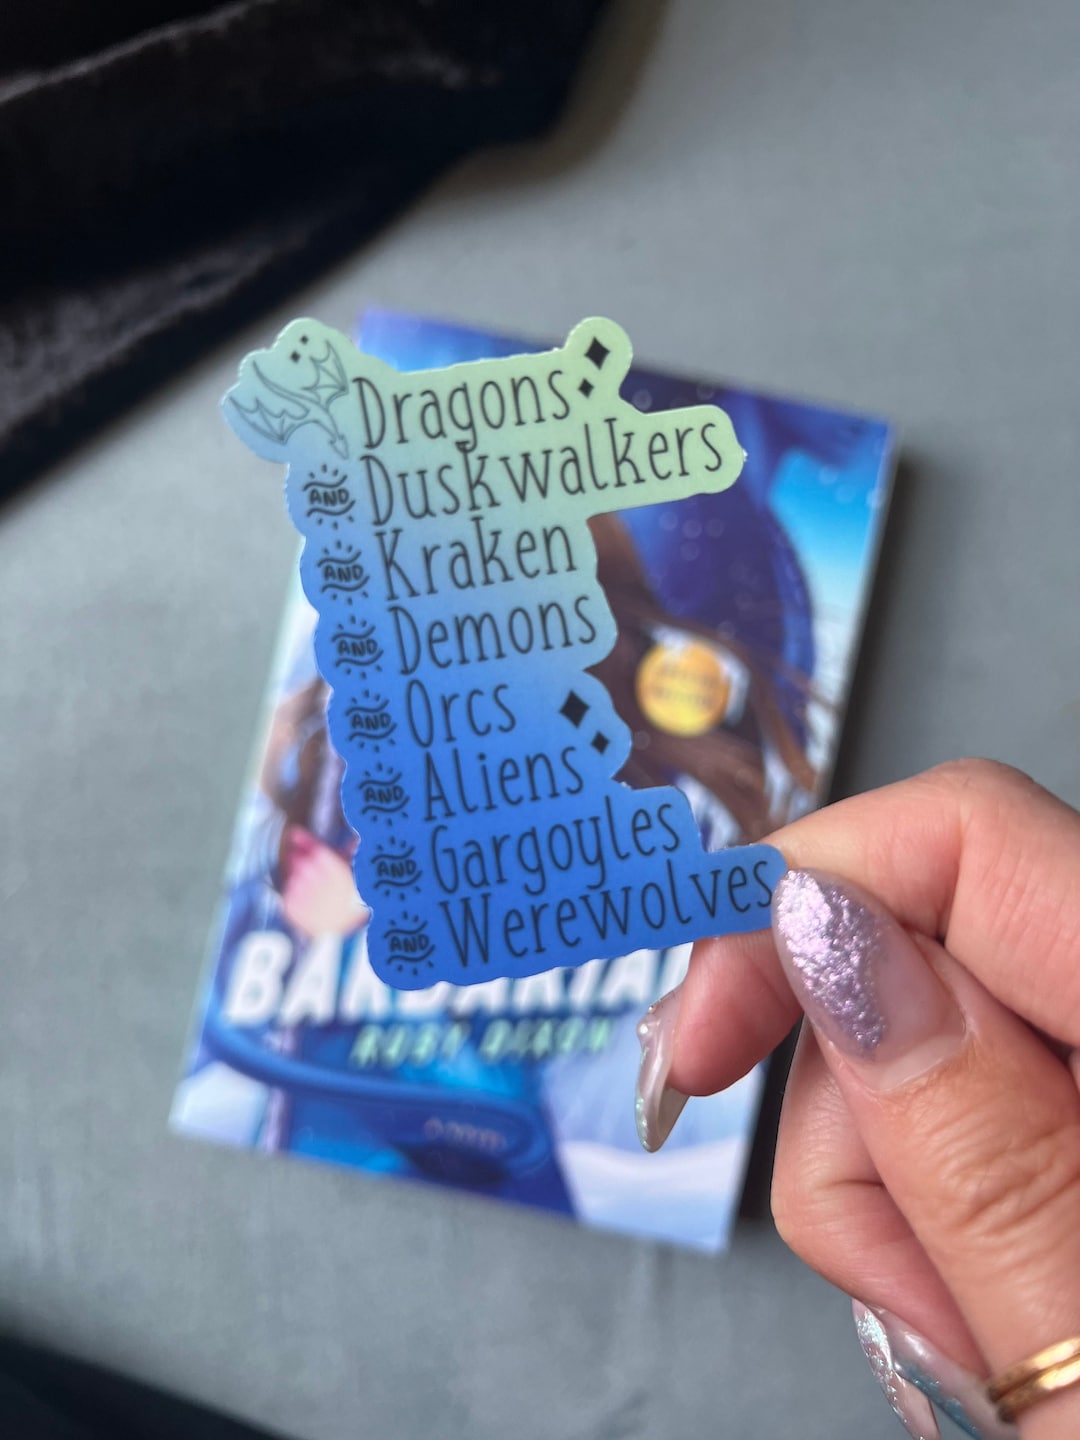 Dragons
AND Duskwalkers
AND Kraken
AND Demons
AND Orcs
AND Aliens
AND Gargoyles
AND Werewolves
BARBARIAN
RUBY DIXON